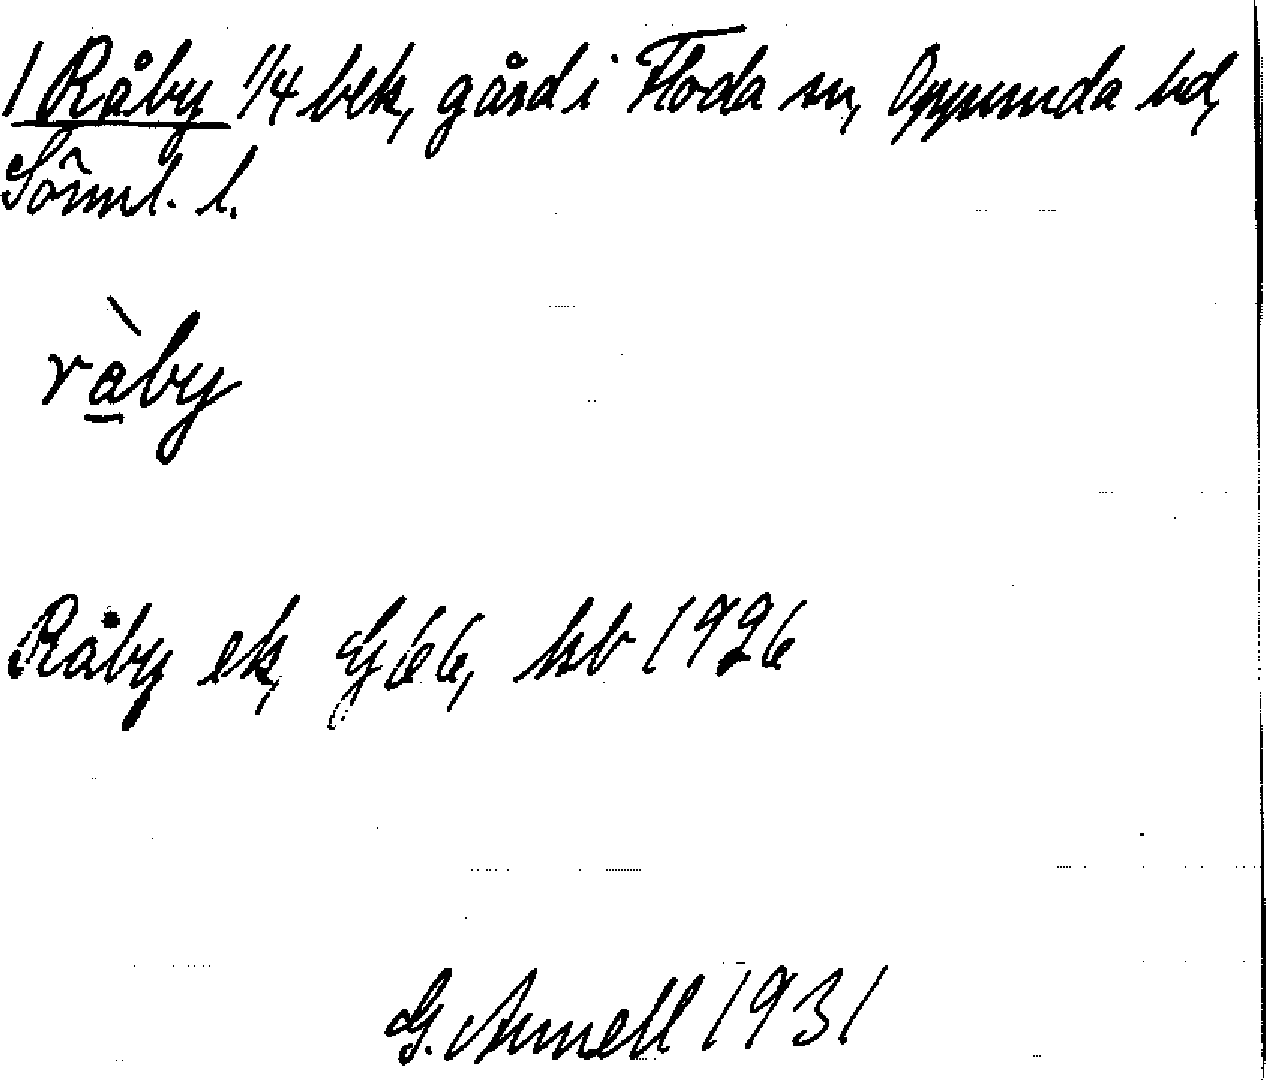 1 Råby 1/4 bek, gård i Floda sn, Oppunda hd,
Sörml. l.
ràby
Råby ek, G 66, hb 1926
G. Arnell 1931